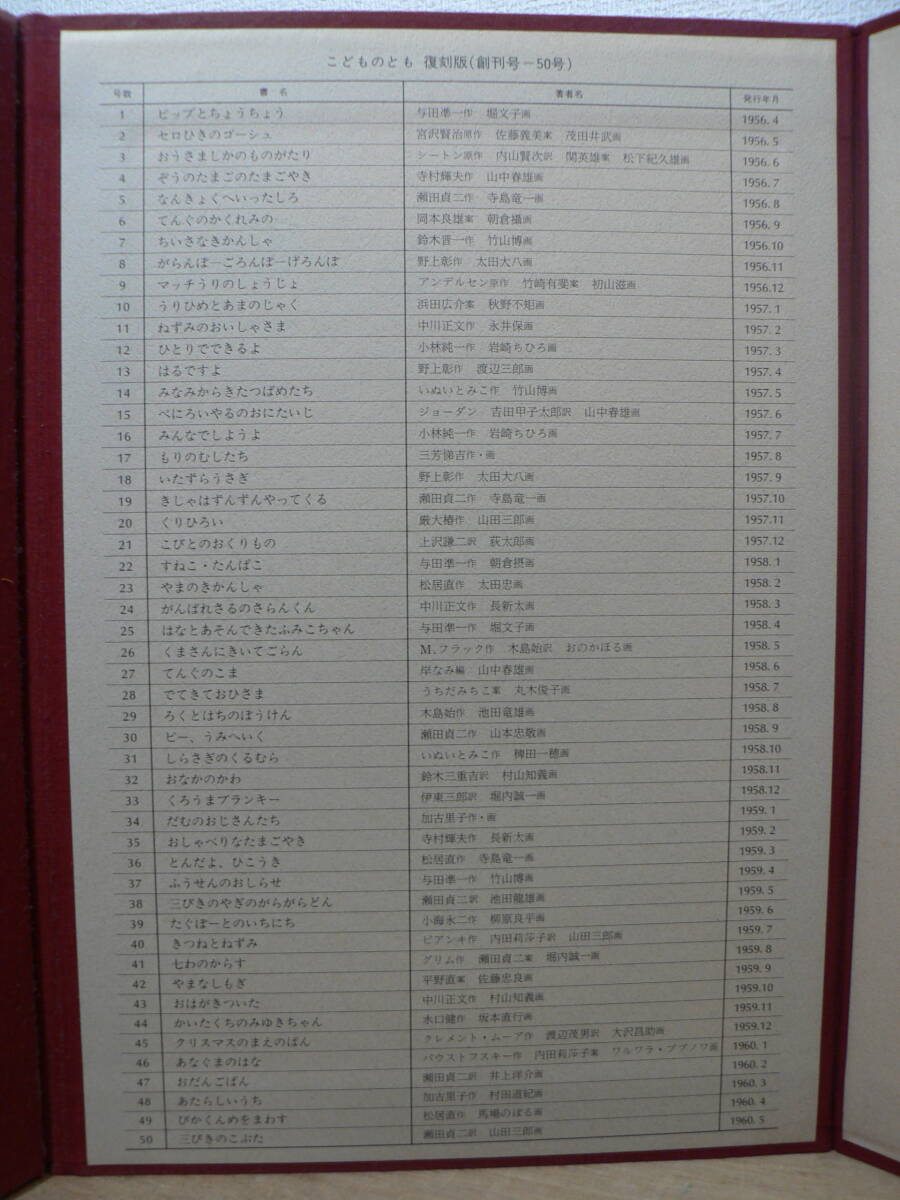 こどものとも 復刻版(創刊号−50号)
号数 書名 著者名 発行年月
1 ビップとちょうちょう 与田凖一作 堀文子画 1956.4
2 セロひきのゴーシュ 宮沢賢治原作 佐藤義美案 茂田井武画 1956.5
3 おうさましかのものがたり シートン原作 内山賢次訳 関英雄案 松下紀久雄画 1956.6
4 ぞうのたまごのたまごやき 寺村輝夫作 山中春雄画 1956.7
5 なんきょくへいったしろ 瀬田貞二作 寺島竜一画 1956.8
6 てんぐのかくれみの 岡本良雄案 朝倉摂画 1956.9
7 ちいさなきかんしゃ 鈴木晋一作 竹山博画 1956.10
8 がらんぼーごろんぼーげろんぼ 野上彰作 太田大八画 1956.11
9 マッチうりのしょうじょ アンデルセン原作 竹崎有斐案 初山滋画 1956.12
10 うりひめとあまのじゃく 浜田広介案 秋野不矩画 1957.1
11 ねずみのおいしゃさま 中川正文作 永井保画 1957.2
12 ひとりでできるよ 小林純一作 岩崎ちひろ画 1957.3
13 はるですよ 野上彰作 渡辺三郎画 1957.4
14 みなみからきたつばめたち いぬいとみこ作 竹山博画 1957.5
15 ぺにろいやるのおにたいじ ジョーダン 吉田甲子太郎訳 山中春雄画 1957.6
16 みんなでしようよ 小林純一作 岩崎ちひろ画 1957.7
17 もりのむしたち 三芳悌吉作・画 1957.8
18 いたずらうさぎ 野上彰作 太田大八画 1957.9
19 きしゃはずんずんやってくる 瀬田貞二作 寺島竜一画 1957.10
20 くりひろい 厳大椿作 山田三郎画 1957.11
21 こびとのおくりもの 上沢謙二訳 荻太郎画 1957.12
22 すねこ・たんぱこ 与田凖一作 朝倉摂画 1958.1
23 やまのきかんしゃ 松居直作 太田忠画 1958.2
24 がんばれさるのさらんくん 中川正文作 長新太画 1958.3
25 はなとあそんできたふみこちゃん 与田凖一作 堀文子画 1958.4
26 くまさんにきいてごらん M.フラック作 木島始訳 おのかほる画 1958.5
27 てんぐのこま 岸なみ編 山中春雄画 1958.6
28 でてきておひさま うちだみちこ案 丸木俊子画 1958.7
29 ろくとはちのぼうけん 木島始作 池田竜雄画 1958.8
30 ピー、うみへいく 瀬田貞二作 山本忠敬画 1958.9
31 しらさぎのくるむら いぬいとみこ作 稗田一穂画 1958.10
32 おなかのかわ 鈴木三重吉訳 村山知義画 1958.11
33 くろうまブランキー 伊東三郎訳 堀内誠一画 1958.12
34 だむのおじさんたち 加古里子作・画 1959.1
35 おしゃべりなたまごやき 寺村輝夫作 長新太画 1959.2
36 とんだよ、ひこうき 松居直作 寺島竜一画 1959.3
37 ふうせんのおしらせ 与田凖一作 竹山博画 1959.4
38 三びきのやぎのがらがらどん 瀬田貞二訳 池田龍雄画 1959.5
39 たぐぼーとのいちにち 小海永二作 柳原良平画 1959.6
40 きつねとねずみ ビアンキ作 内田莉莎子訳 山田三郎画 1959.7
41 七わのからす グリム作 瀬田貞二案 堀内誠一画 1959.8
42 やまなしもぎ 平野直案 佐藤忠良画 1959.9
43 おはがきついた 中川正文作 村山知義画 1959.10
44 かいたくちのみゆきちゃん 水口健作 坂本直行画 1959.11
45 クリスマスのまえのばん クレメント・ムーア作 渡辺茂男訳 大沢昌助画 1959.12
46 あなぐまのはな パウストフスキー作 内田莉莎子案 ワルワラ・ブブノワ画 1960.1
47 おだんごぱん 瀬田貞二訳 井上洋介画 1960.2
48 あたらしいうち 加古里子作 村田道紀画 1960.3
49 ぴかくんめをまわす 松居直作 馬場のぼる画 1960.4
50 三びきのこぶた 瀬田貞二訳 山田三郎画 1960.5